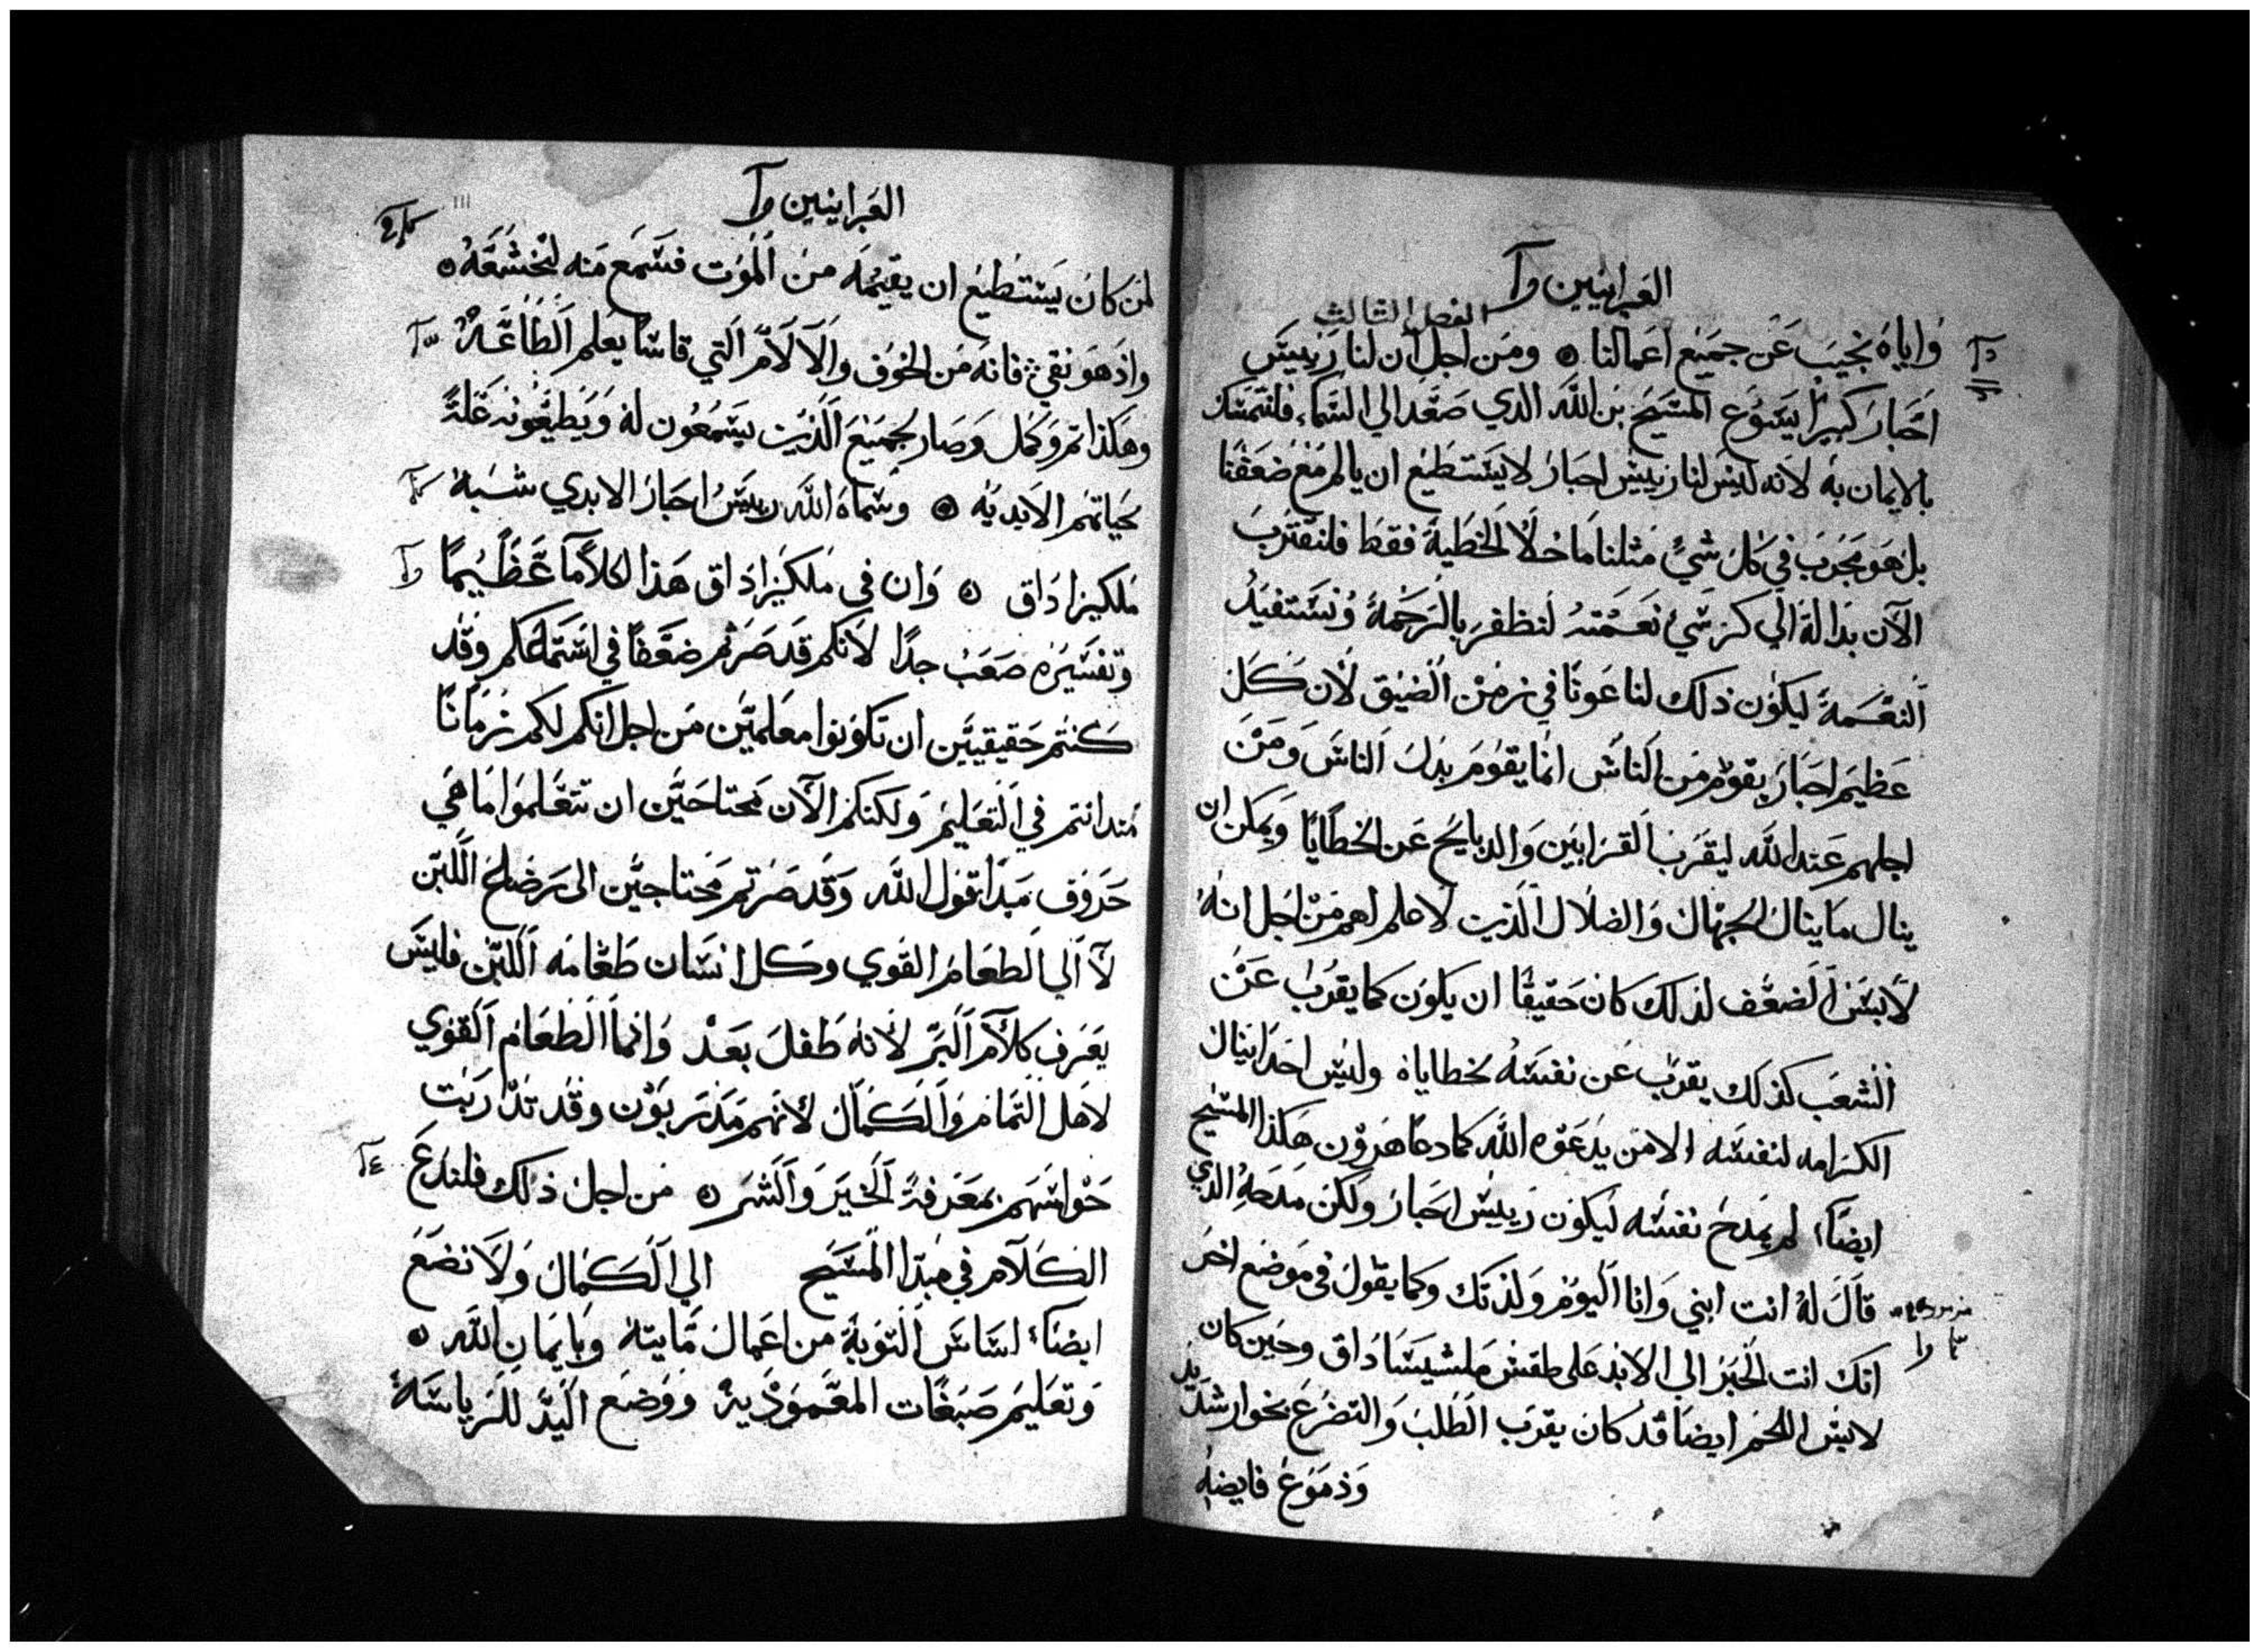 العبرانيين
الفصل الثالث
واياه نجيب عن جميع اعمالنا ومن اجل ان لنا رييس
احبار كبير يسوع المسيح بن الله الدي صعد الي السماء فلنتمسك
بالايمان به لانه ليس لنا رييس احبار لا يستطيع ان يالم مع ضعفنا
بل هو مجرب في كل شي مثلنا ما خلا الخطية فقط فلنقترب
الآن بدالة الي كرسي نعمته لنظفر بالرحمة ونستفيد
النعمة ليكون ذلك لنا عونا في زمن الضيق لان كل
عظيم احبار يقوم من الناس انما يقوم بدل الناس ومن
اجلهم عند الله ليقرب القرابين والدبايح عن الخطايا ويمكن ان
ينال ما ينال الجهال والضلال الذين لا علم لهم من اجل انه
لابس الضعف لذلك كان حقيقا ان يكون كما يقرب عن
الشعب كذلك يقرب عن نفسه لخطاياه وليس احد اينال
الكرامه لنفسه الا من يدعوه الله كما دعا هرون هكذا المسيح
ايضا لم يمدح نفسه ليكون رييس احبار ولكن مدحه الذي
قال له انت ابني وانا اليوم ولدتك وكما يقول في موضع اخر
انك انت الحبر الي الابد على طقس ملشيساداق وحين كان
لابس اللحم ايضا قد كان يقرب الطلب والتضرع بخوار شديد
ودموع فايضه
العبرانيين
لمن كان يستطيع ان يقيمه من الموت فسمع منه لتخشعه
واذ هو نقي فانه من الخوف والآلام التي قاسا يعلم الطاعة
وهكذا تم وكمل وصار لجميع الذين يسمعون له ويطيعونه علة
لحياتهم الابديه وسماه الله رييس احبار الابدي شبه
ملكيزاداق وان في ملكيزاداق هذا لكلاما عظيما
وتفسيره صعب جدا لانكم قد صرتم ضعفا في استماعكم وقد
كنتم حقيقيين ان تكونوا معلمين من اجل انكم لكم زمانا
مند انتم في التعليم ولكنكم الآن محتاجين ان تتعلموا ما هي
حروف مبدا قول الله وقد صرتم محتاجين الى رضاع اللبن
لا الي الطعام القوي وكل انسان طعامه اللبن فليس
يعرف كلام البر لانه طفل بعد وانما الطعام القوي
لاهل التمام والكمال لانهم مدربون وقد تدربت
حواسهم بمعرفة الخير والشر من اجل ذلك فلندع
الكلام في مبدا المسيح الي الكمال ولا نضع
ايضا اساس التوبة من اعمال مايته وبايمان الله
وتعليم صبغات المعمودية ووضع اليد للرياسة